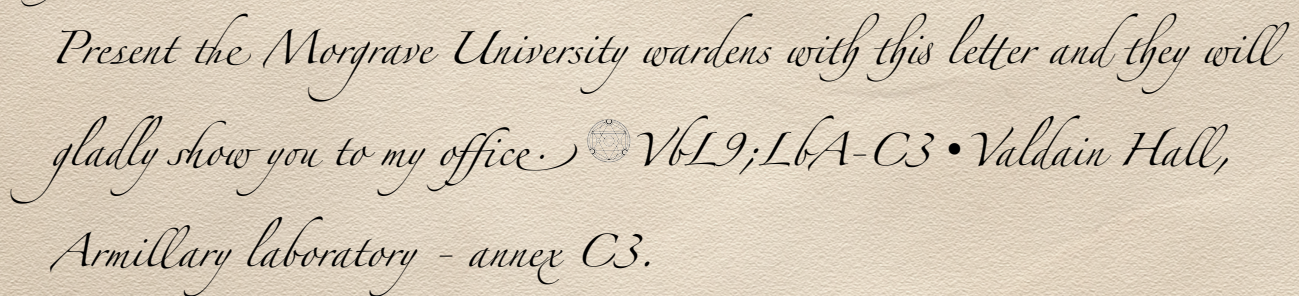 Present the Morgrave University wardens with this letter and they will
gladly show you to my office. VbL9;LbA-C3 • Valdain Hall,
Armillary laboratory - annex C3.